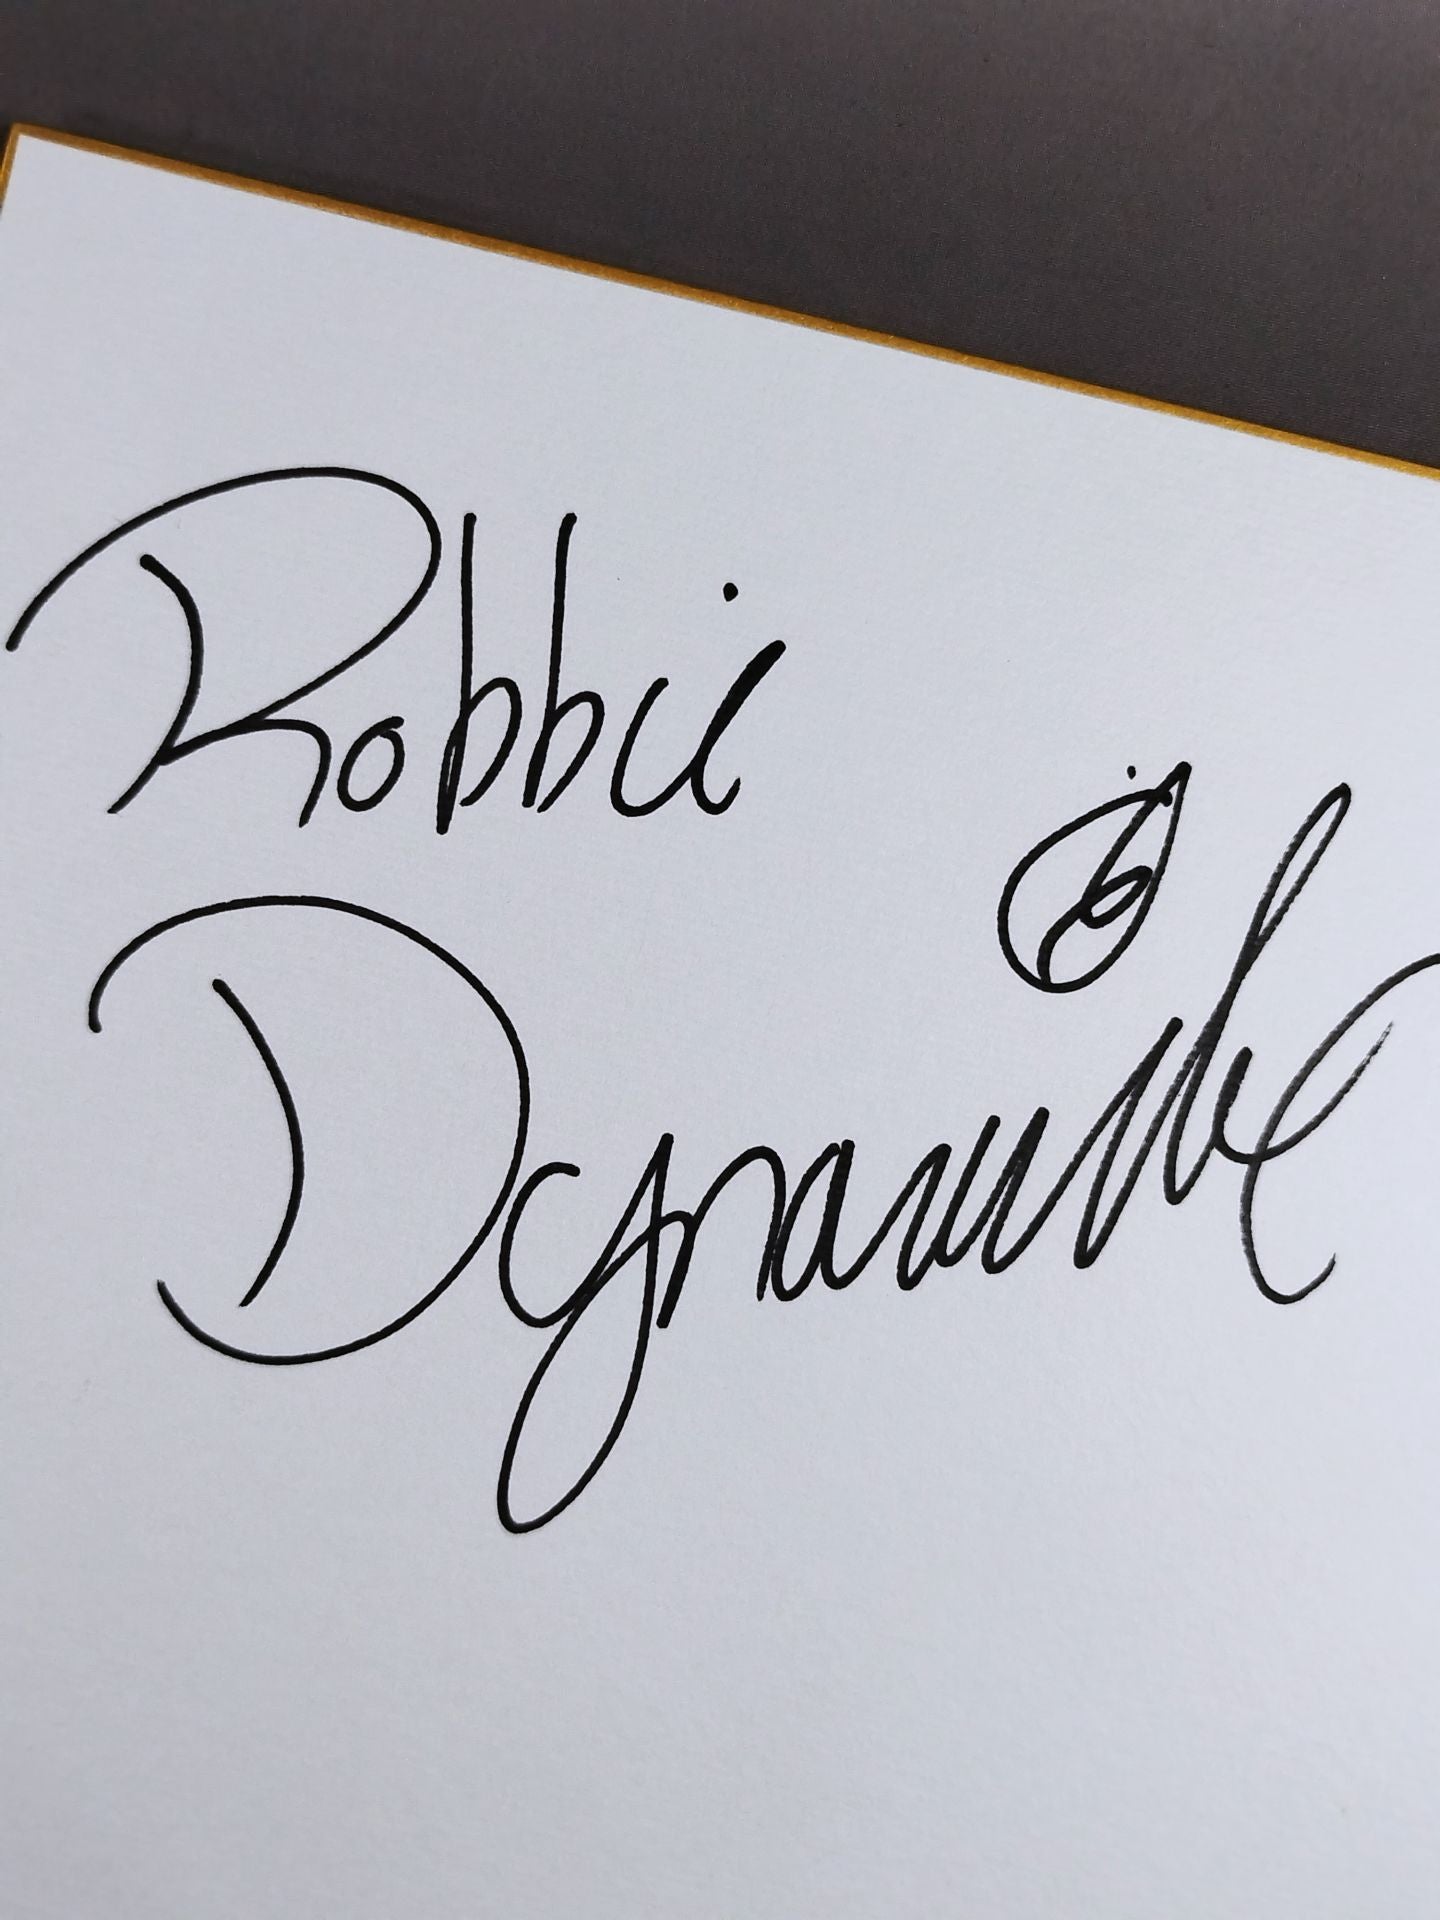 Robbie
Dynamite